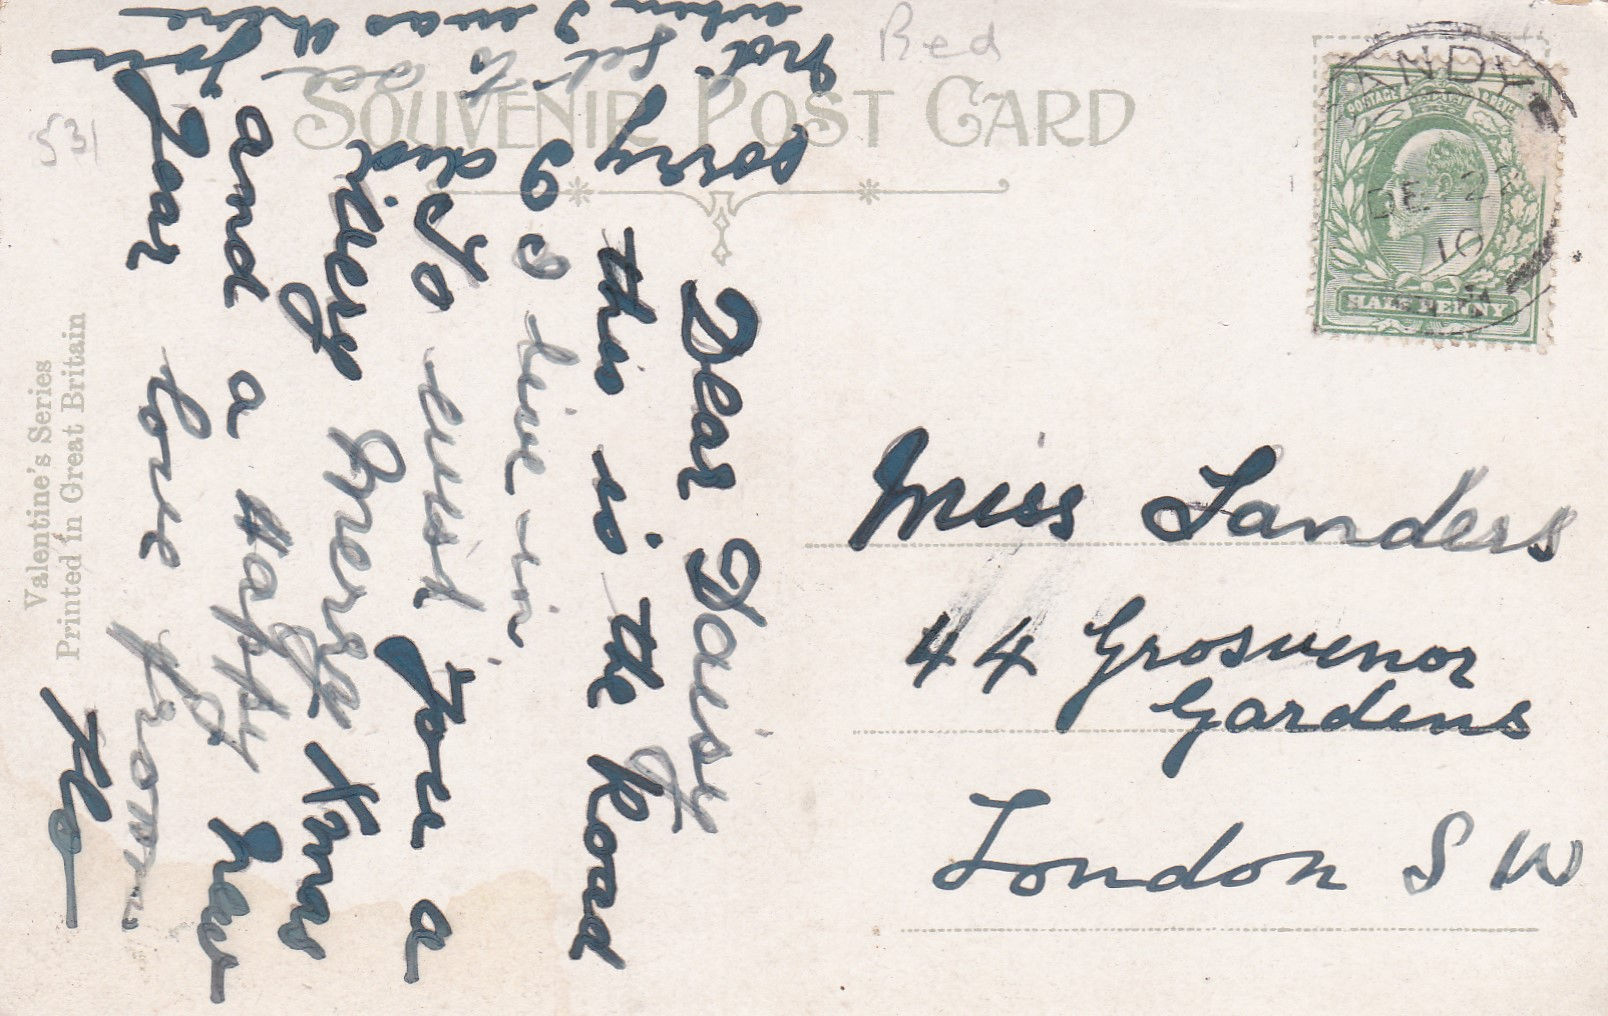 SOUVENIR POST CARD
Valentine's Series
Printed in Great Britain
Dear Daisy
this is the Road
I live in
To wish you a
very Merry Xmas
and a Happy New
Year love from
Flo
sorry I did
not get to see you
when I was there
Miss Sanders
44 Grosvenor
Gardens
London S W
POSTAGE REVENUE
HALFPENNY
ANDY
DE 2
10
531